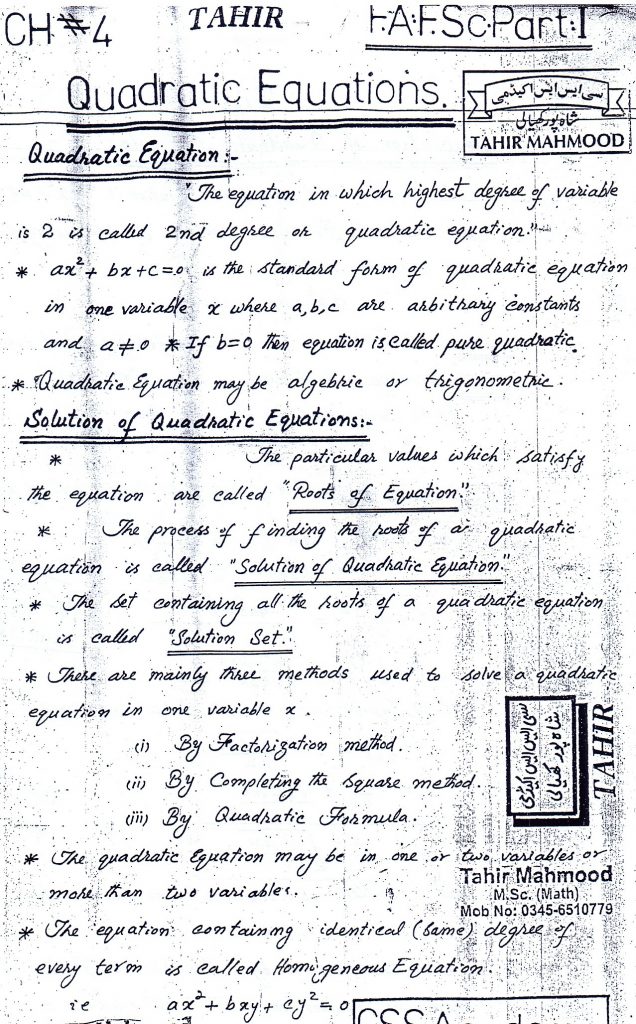 CH#4
TAHIR
F.A.F.Sc.Part:I
Quadratic Equations.
سی ایس ایس اکیڈمی
شاہ پور کھیالی
TAHIR MAHMOOD
Quadratic Equation:-
"The equation in which highest degree of variable
is 2 is called 2nd degree or quadratic equation."
* ax²+bx+c=0 is the standard form of quadratic equation
in one variable x where a,b,c are arbitrary constants
and a≠0 * If b=0 then equation is called pure quadratic.
* Quadratic Equation may be algebric or trigonometric.
Solution of Quadratic Equations:-
* The particular values which satisfy
the equation are called "Roots of Equation."
* The process of finding the roots of a quadratic
equation is called "Solution of Quadratic Equation."
* The set containing all the roots of a quadratic equation
is called "Solution Set."
* There are mainly three methods used to solve a quadratic
equation in one variable x.
سی ایس ایس اکیڈمی
شاہ پور کھیالی
TAHIR
(i) By Factorization method.
(ii) By Completing the square method.
(iii) By Quadratic Formula.
* The quadratic Equation may be in one or two variables or
more than two variables.
Tahir Mahmood
M.Sc. (Math)
Mob No: 0345-6510779
* The equation containing identical (same) degree of
every term is called Homigeneous Equation.
ie ax²+bxy+cy²=0